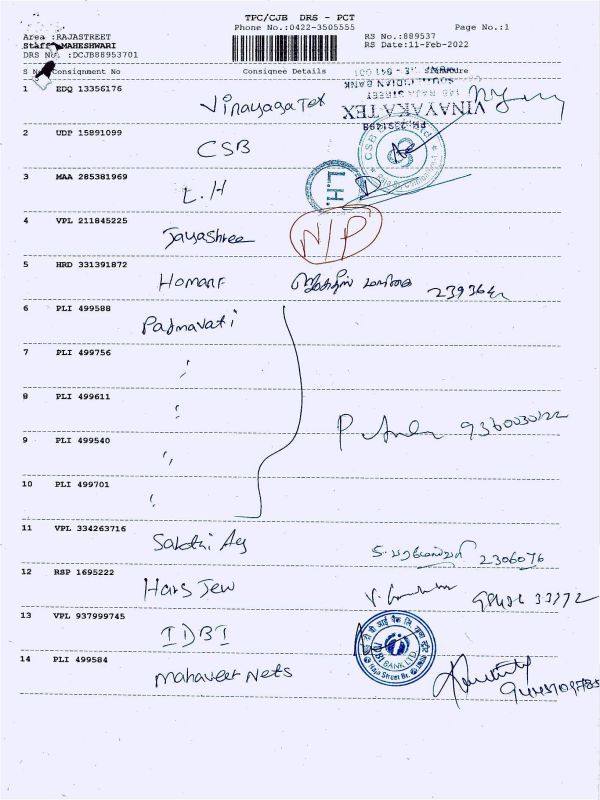 TPC/CJB DRS - PCT
Phone No.:0422-3505555
Page No.:1
Area :RAJASTREET
RS No.:889537
Staff :MAHESHWARI
RS Date:11-Feb-2022
DRS No. :DCJB88953701
S No Consignment No Consignee Details Signature
1 EDQ 13356176 Vinayaga Tex
VINAYAKA TEX
RAJA STREET
2 UDP 15891099 CSB
CSB
3 MAA 285381969 L.H
L.H.
4 VPL 211845225 Jayashree N/P
5 HRD 331391872
6 PLI 499588 Padmavati
7 PLI 499756 "
8 PLI 499611 "
9 PLI 499540 "
10 PLI 499701 "
11 VPL 334263716 Sakthi Ag 2306076
12 RSP 1695222 Haris Jew
13 VPL 937999745 IDBI
IDBI BANK LTD.
Raja Street Br.
14 PLI 499584 Mahaveer Nets